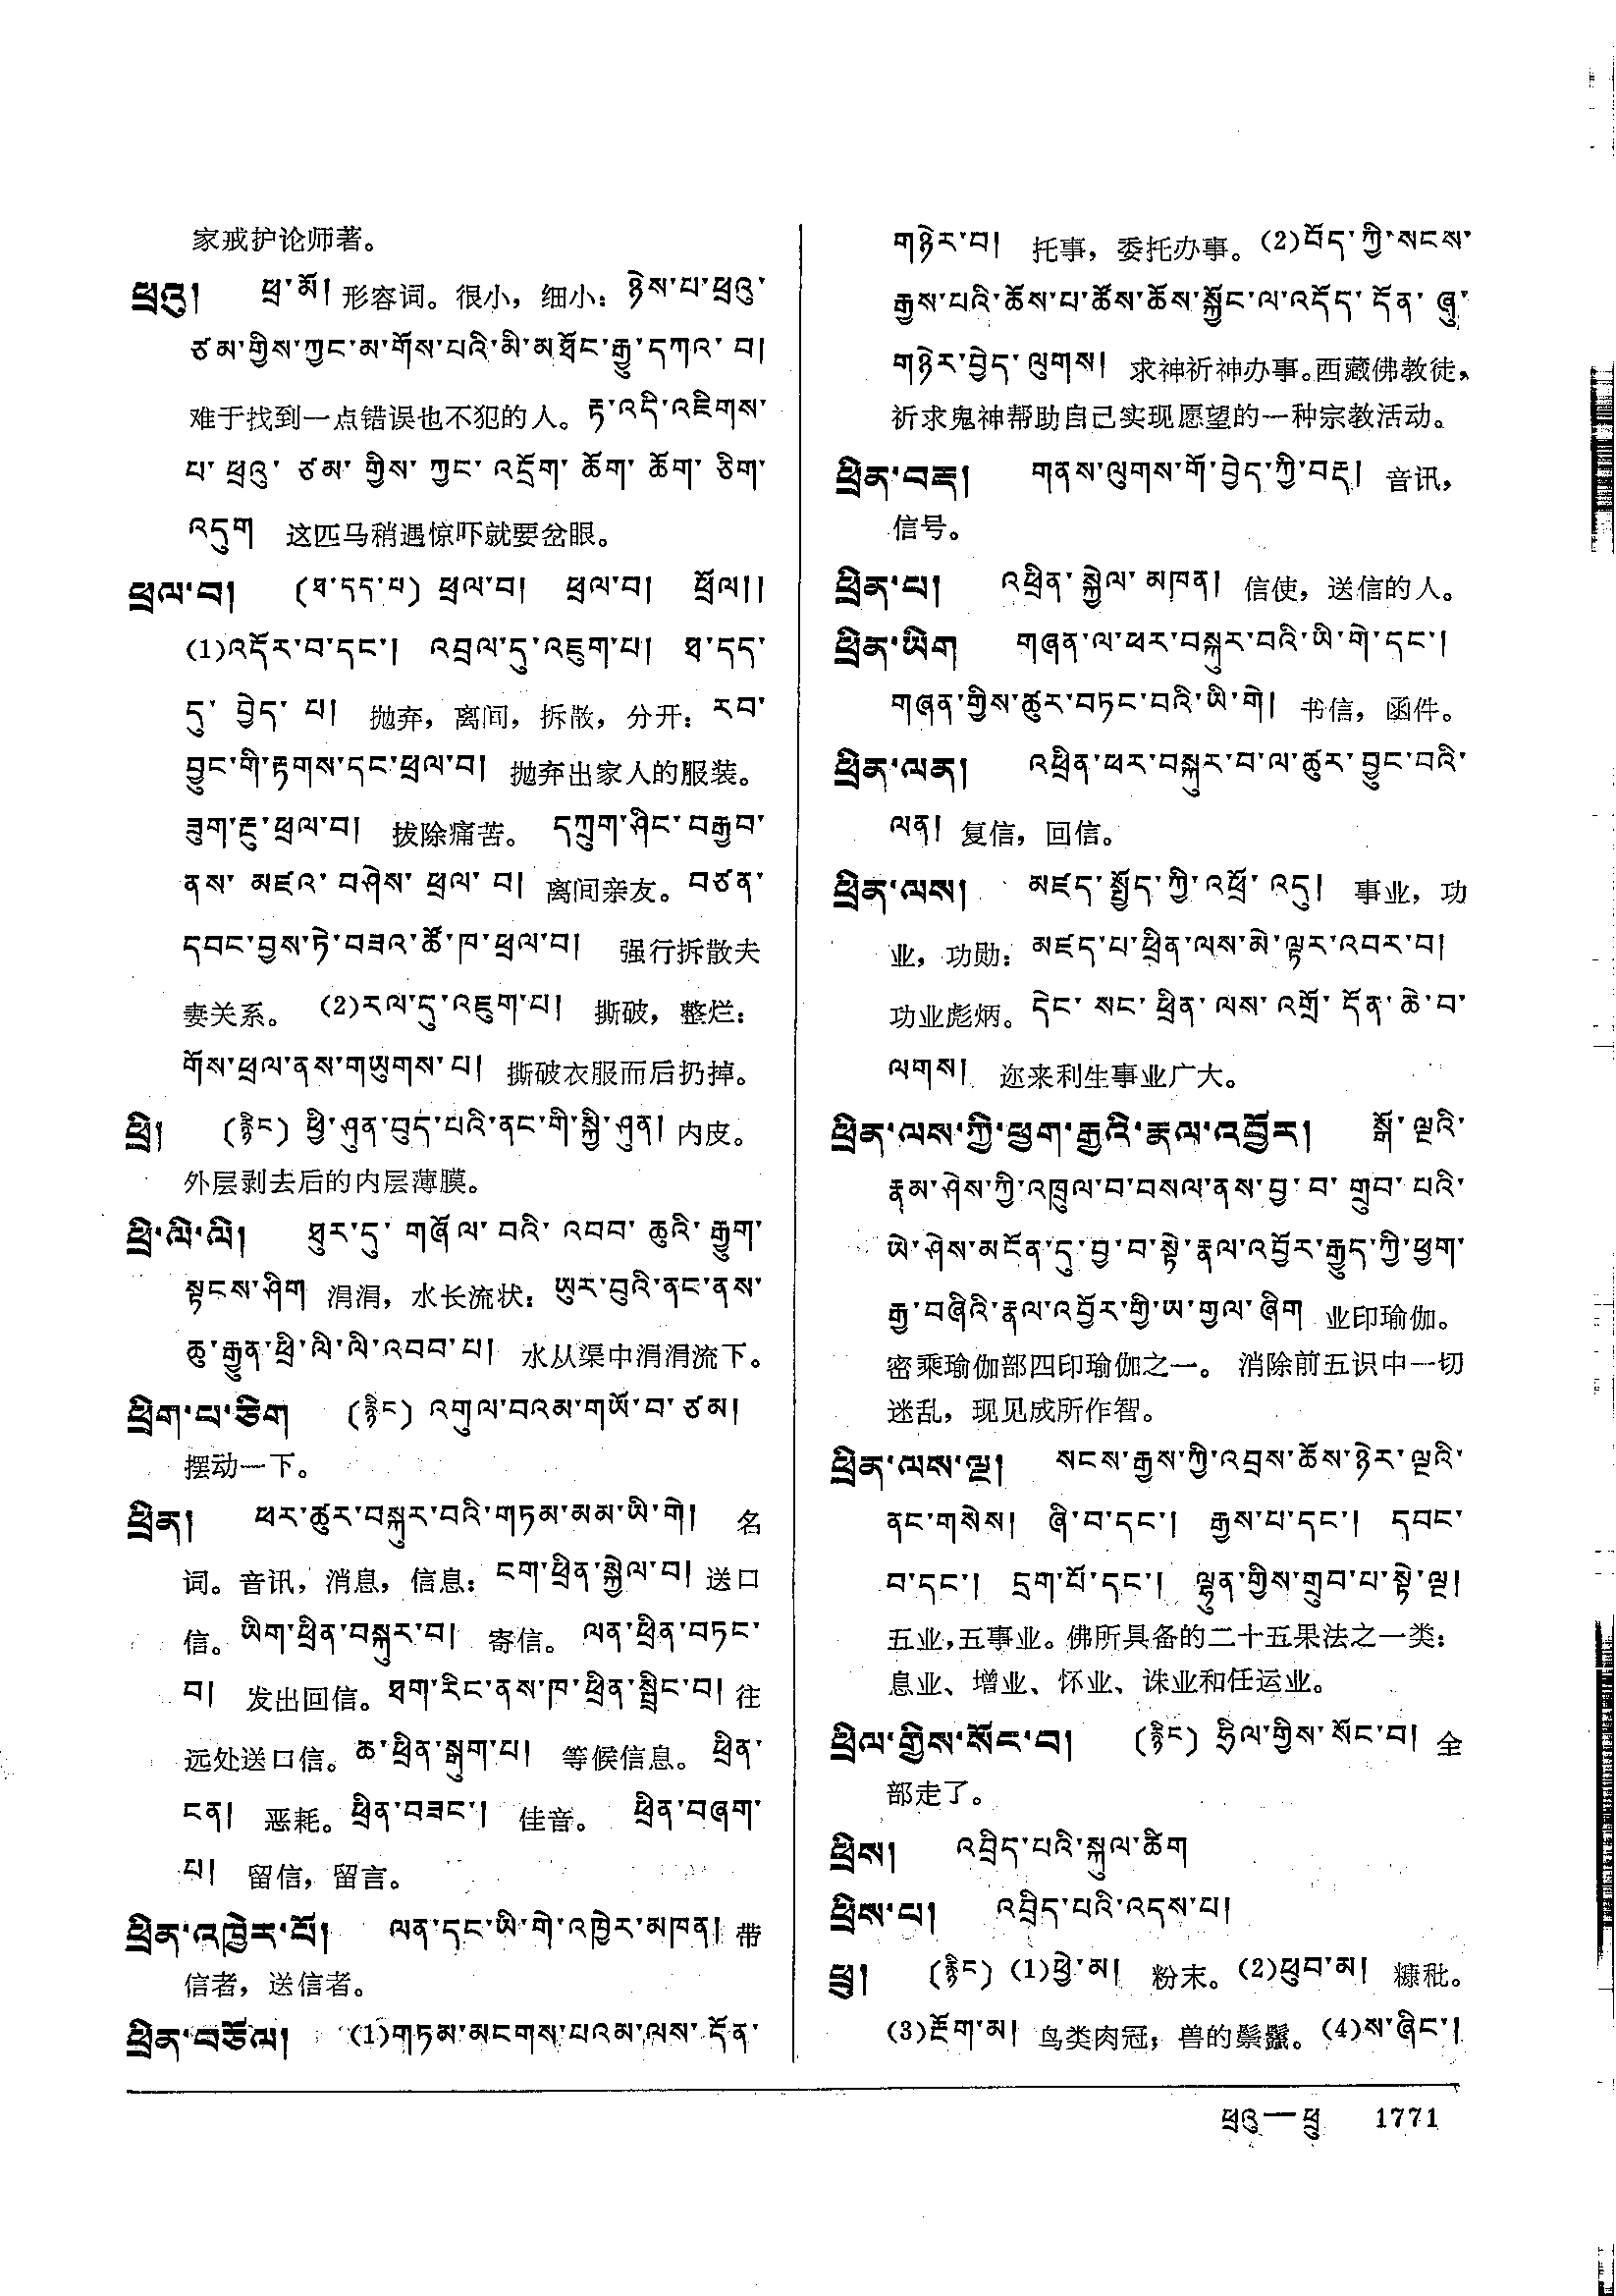 家戒护论师著。
ཕྲའུ། ཕྲ་མོ། 形容词。很小，细小：ཉེས་པ་ཕྲའུ་
ཙམ་གྱིས་ཀྱང་མ་གོས་པའི་མི་མཐོང་རྒྱུ་དཀའ་བ།
难于找到一点错误也不犯的人。རྟ་འདི་འཇིགས་
པ་ཕྲའུ་ཙམ་གྱིས་ཀྱང་འདྲོག་ཚོག་ཚོག་ཅིག་
འདུག 这匹马稍遇惊吓就要岔眼。
ཕྲལ་བ། (ཐ་དད་པ) ཕྲལ་བ། ཕྲལ་བ། ཕྲོལ།།
(1)འདོར་བ་དང་། འབྲལ་དུ་འཇུག་པ། ཐ་དད་
དུ་བྱེད་པ། 抛弃，离间，拆散，分开：རབ་
བྱུང་གི་རྟགས་དང་ཕྲལ་བ། 抛弃出家人的服装。
ཟུག་རྔུ་ཕྲལ་བ། 拔除痛苦。དཀྲུག་ཤིང་བརྒྱབ་
ནས་མཛའ་བཤེས་ཕྲལ་བ། 离间亲友。བཙན་
དབང་བྱས་ཏེ་བཟའ་ཚོ་ཁ་ཕྲལ་བ། 强行拆散夫
妻关系。(2)རལ་དུ་འཇུག་པ། 撕破，整烂：
གོས་ཕྲལ་ནས་གཡུགས་པ། 撕破衣服而后扔掉。
ཕྲི། (རྙིང) ཕྱི་ཤུན་བུད་པའི་ནང་གི་སྐྱི་ཤུན། 内皮。
外层剥去后的内层薄膜。
ཕྲི་ལི་ལི། ཐུར་དུ་གཞོལ་བའི་འབབ་ཆུའི་རྒྱུག་
སྟངས་ཤིག 涓涓，水长流状：ཡུར་བུའི་ནང་ནས་
ཆུ་རྒྱུན་ཕྲི་ལི་ལི་འབབ་པ། 水从渠中涓涓流下。
ཕྲིག་པ་ཅིག (རྙིང) འགུལ་བའམ་གཡོ་བ་ཙམ།
摆动一下。
ཕྲིན། ཕར་ཚུར་བསྐུར་བའི་གཏམ་མམ་ཡི་གེ། 名
词。音讯，消息，信息：ངག་ཕྲིན་སྐྱེལ་བ། 送口
信。ཡིག་ཕྲིན་བསྐུར་བ། 寄信。ལན་ཕྲིན་བཏང་
བ། 发出回信。ཐག་རིང་ནས་ཁ་ཕྲིན་སྤྲིང་བ། 往
远处送口信。ཆ་ཕྲིན་སྒུག་པ། 等候信息。ཕྲིན་
ངན། 恶耗。ཕྲིན་བཟང་། 佳音。ཕྲིན་བཞག་
པ། 留信，留言。
ཕྲིན་འཁྱེར་པོ། ལན་དང་ཡི་གེ་འཁྱེར་མཁན། 带
信者，送信者。
ཕྲིན་བཅོལ། (1)གཏམ་མངགས་པའམ་ལས་དོན་
གཉེར་བ། 托事，委托办事。(2)བོད་ཀྱི་སངས་
རྒྱས་པའི་ཆོས་པ་ཚོས་ཆོས་སྐྱོང་ལ་འདོད་དོན་ཞུ་
གཉེར་བྱེད་ལུགས། 求神祈神办事。西藏佛教徒，
祈求鬼神帮助自己实现愿望的一种宗教活动。
ཕྲིན་བརྡ། གནས་ལུགས་གོ་བྱེད་ཀྱི་བརྡ། 音讯，
信号。
ཕྲིན་པ། འཕྲིན་སྐྱེལ་མཁན། 信使，送信的人。
ཕྲིན་ཡིག གཞན་ལ་ཕར་བསྐུར་བའི་ཡི་གེ་དང་།
གཞན་གྱིས་ཚུར་བཏང་བའི་ཡི་གེ། 书信，函件。
ཕྲིན་ལན། འཕྲིན་ཕར་བསྐུར་བ་ལ་ཚུར་བྱུང་བའི་
ལན། 复信，回信。
ཕྲིན་ལས། མཛད་སྤྱོད་ཀྱི་འཕྲོ་འདུ། 事业，功
业，功勋：མཛད་པ་ཕྲིན་ལས་མེ་ལྟར་འབར་བ།
功业彪炳。དེང་སང་ཕྲིན་ལས་འགྲོ་དོན་ཆེ་བ་
ལགས། 迩来利生事业广大。
ཕྲིན་ལས་ཀྱི་ཕྱག་རྒྱའི་རྣལ་འབྱོར། སྒོ་ལྔའི་
རྣམ་ཤེས་ཀྱི་འཁྲུལ་བ་བསལ་ནས་བྱ་བ་གྲུབ་པའི་
ཡེ་ཤེས་མངོན་དུ་བྱ་བ་སྟེ་རྣལ་འབྱོར་རྒྱུད་ཀྱི་ཕྱག་
རྒྱ་བཞིའི་རྣལ་འབྱོར་གྱི་ཡ་གྱལ་ཞིག 业印瑜伽。
密乘瑜伽部四印瑜伽之一。消除前五识中一切
迷乱，现见成所作智。
ཕྲིན་ལས་ལྔ། སངས་རྒྱས་ཀྱི་འབྲས་ཆོས་ཉེར་ལྔའི་
ནང་གསེས། ཞི་བ་དང་། རྒྱས་པ་དང་། དབང་
བ་དང་། དྲག་པོ་དང་། ལྷུན་གྱིས་གྲུབ་པ་སྟེ་ལྔ།
五业，五事业。佛所具备的二十五果法之一类：
息业、增业、怀业、诛业和任运业。
ཕྲིལ་གྱིས་སོང་བ། (རྙིང) ཧྲིལ་གྱིས་སོང་བ། 全
部走了。
ཕྲིས། འབྲིད་པའི་སྐུལ་ཚིག
ཕྲིས་པ། འབྲིད་པའི་འདས་པ།
ཕྲུ། (རྙིང) (1)ཕྱེ་མ། 粉末。(2)ཕུབ་མ། 糠秕。
(3)རྔོག་མ། 鸟类肉冠；兽的鬃鬣。(4)ས་ཞིང་།
ཕྲའུ—ཕྲུ 1771